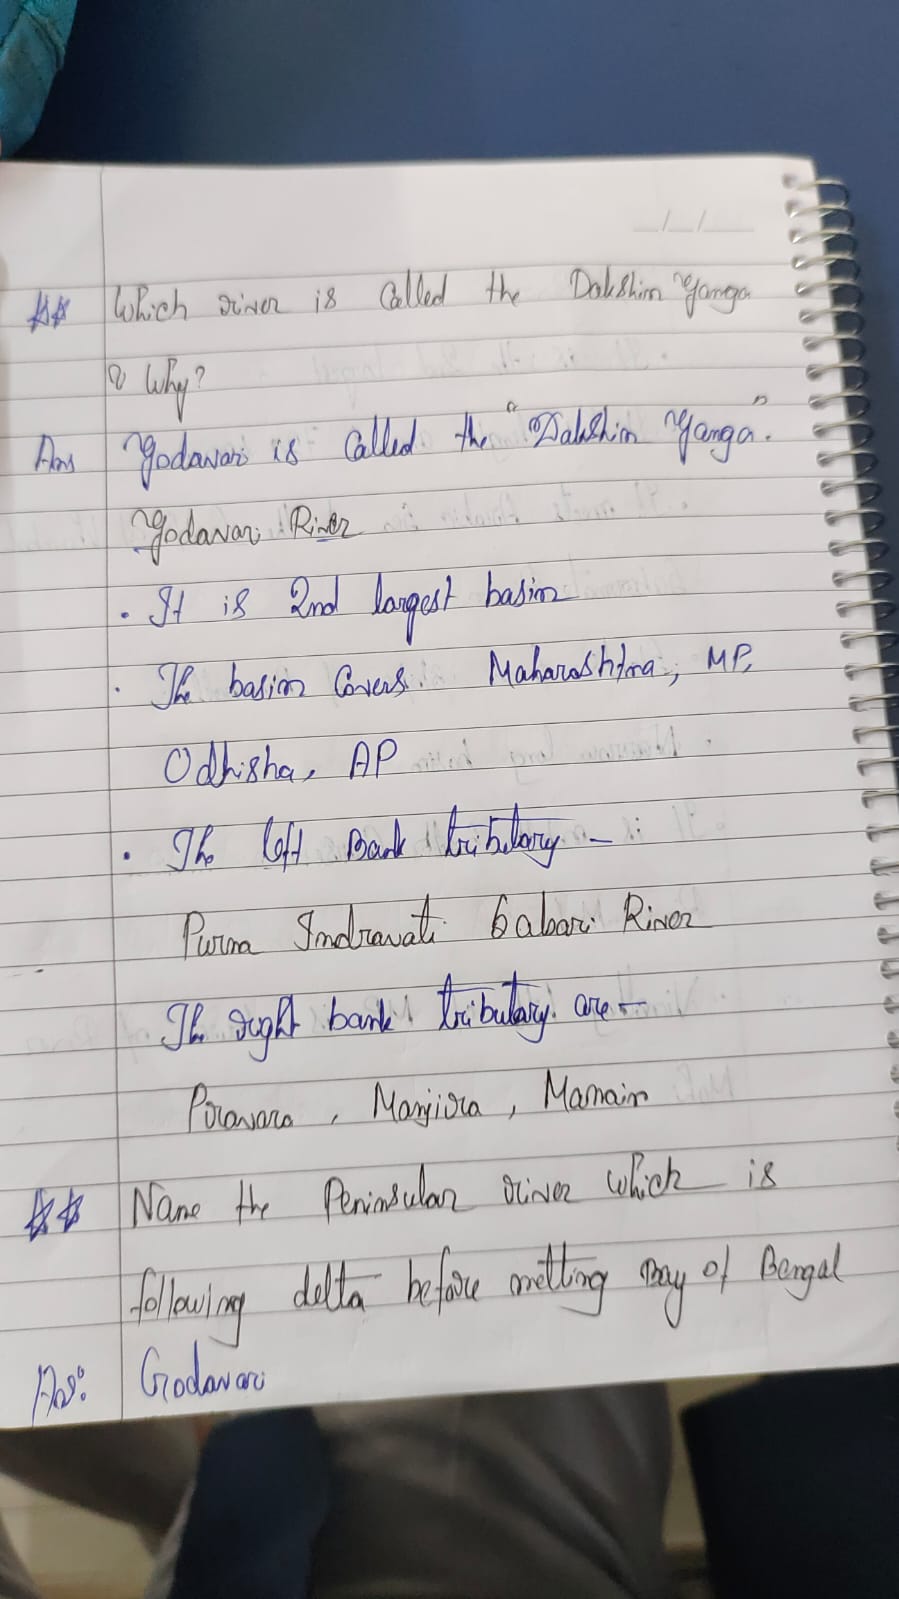 Which river is Called the Dakshim Ganga
& Why?
Ans Godavari is Called the "Dakshin Ganga".
Godavari River
. It is 2nd largest basin
. The basin Covers. Maharashtra, MP,
Odhisha, AP
. The left Bank tributary -
Purna Indravati Sabari River
The right bank tributary are -
Pravara, Manjira, Manair
Name the Peninsular river which is
following delta before metting Bay of Bengal
Ans: Godavari